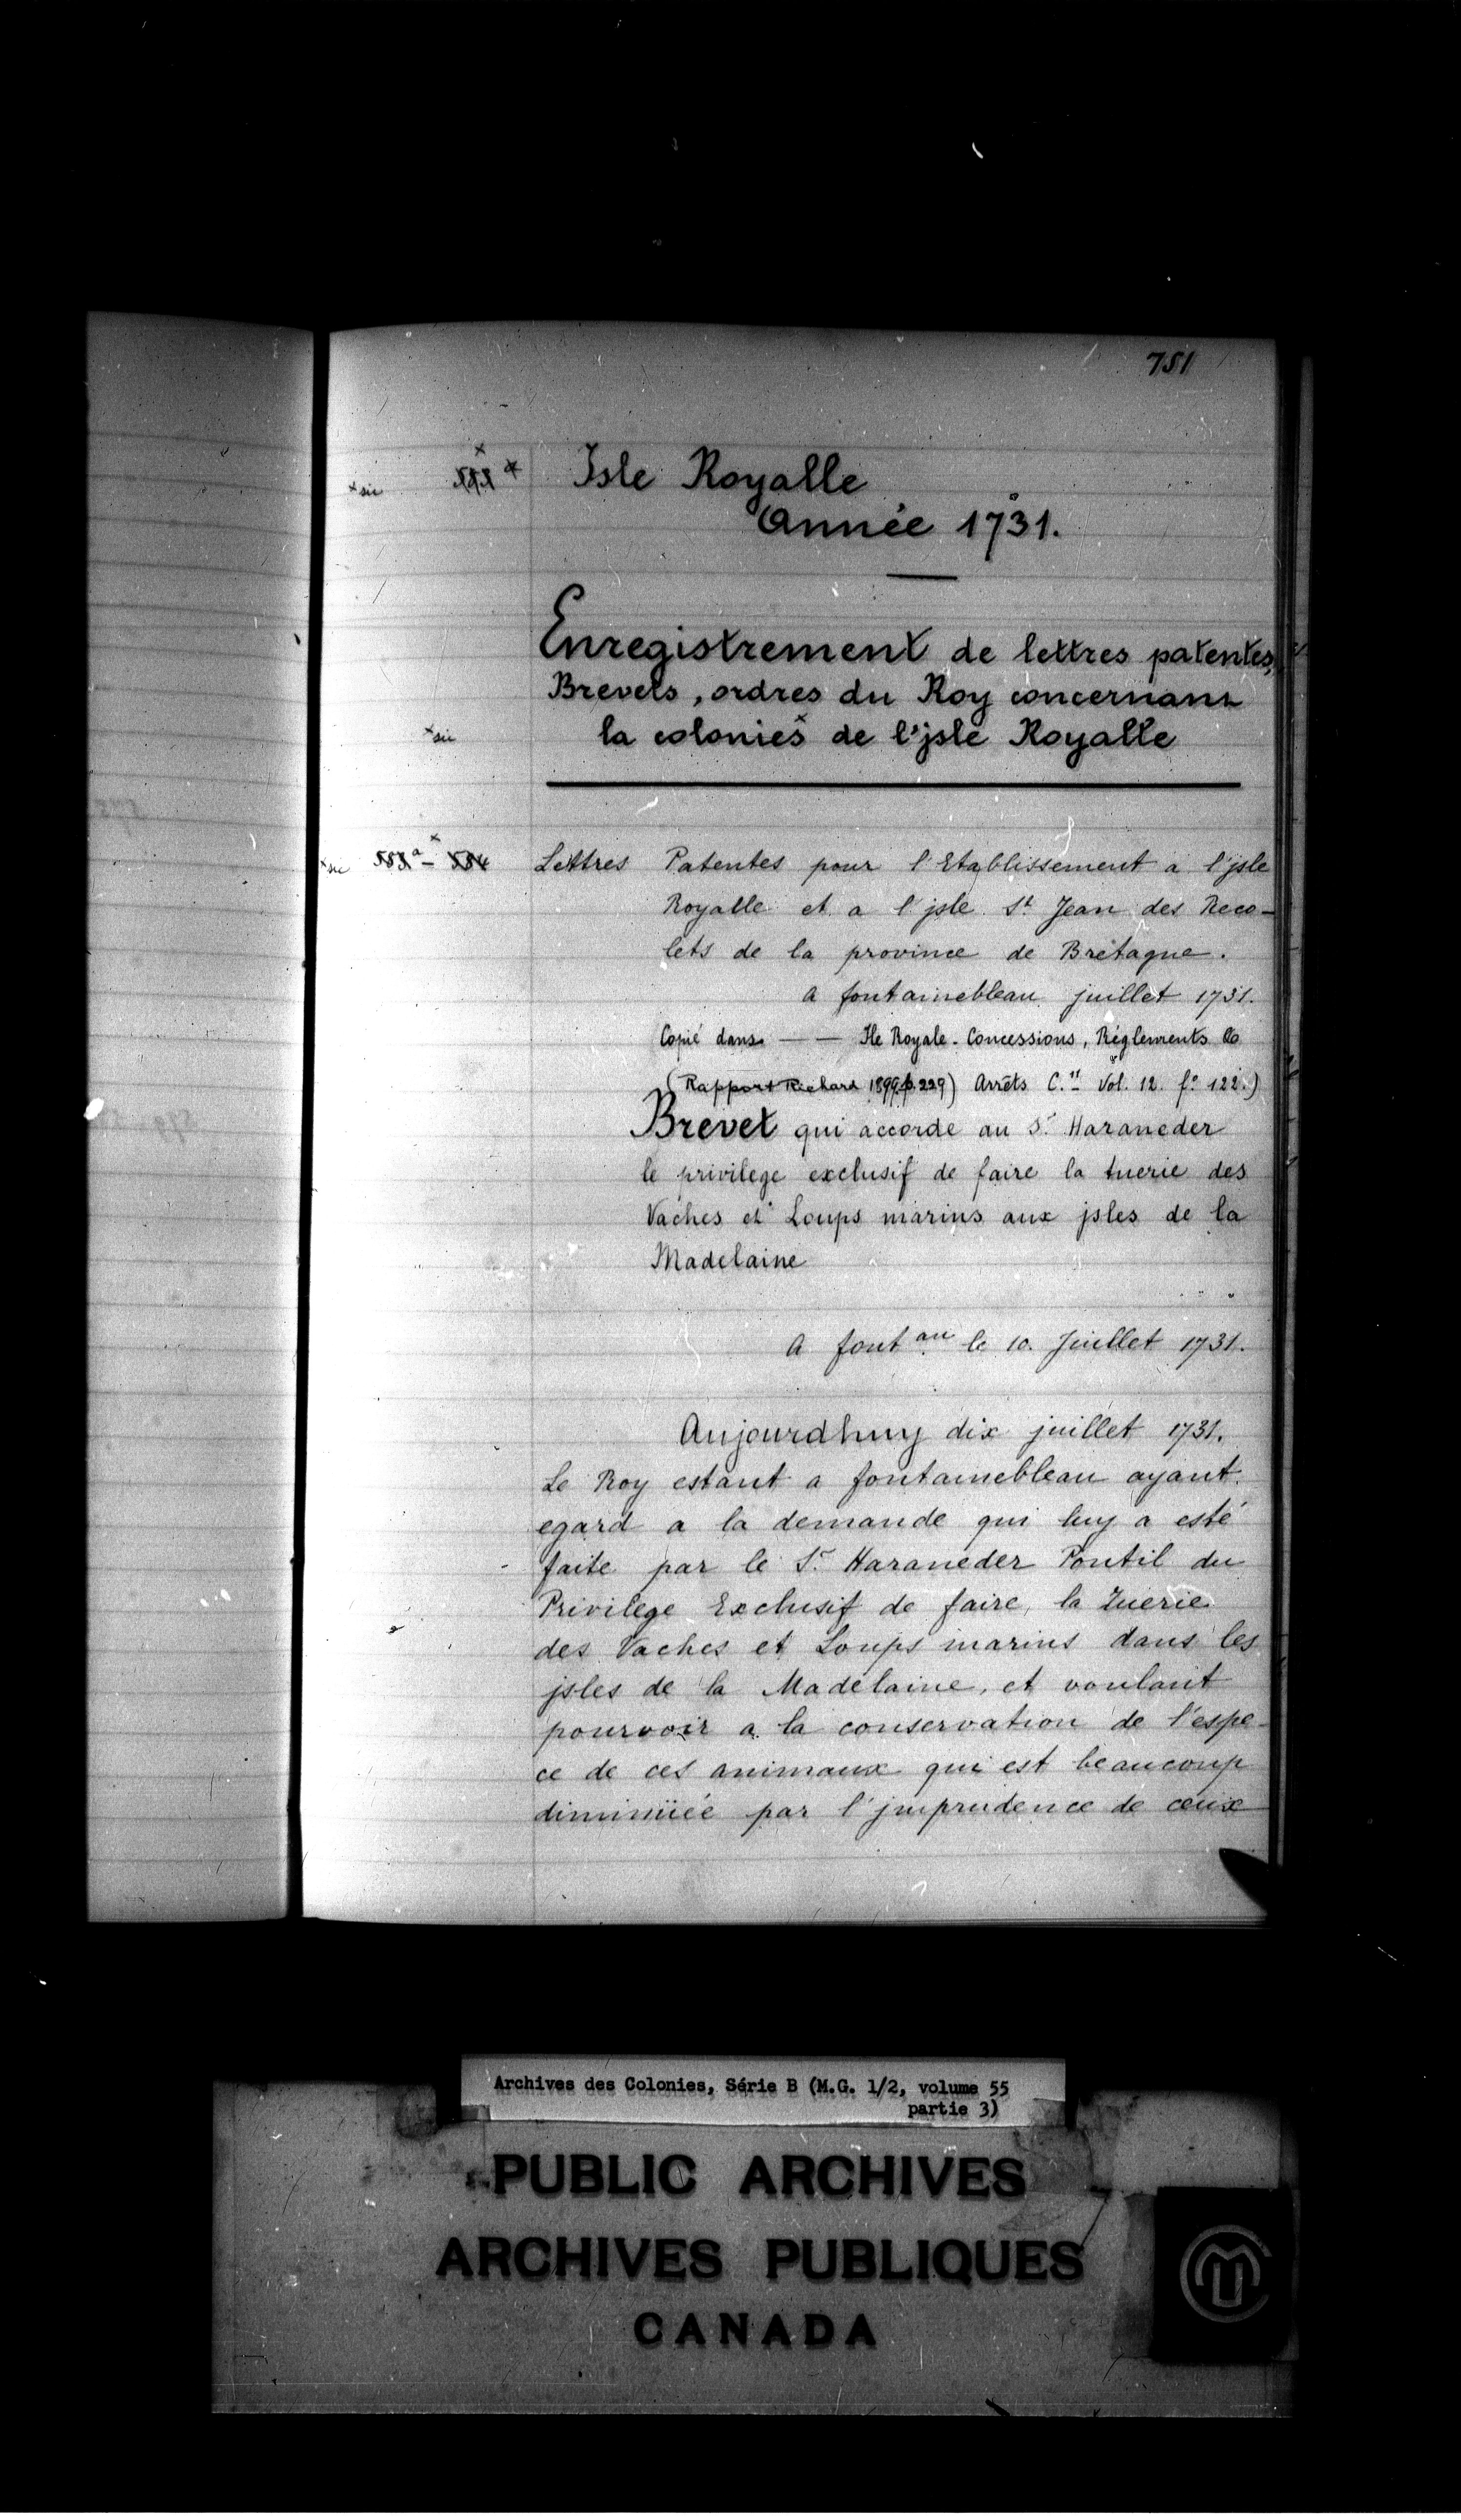 751
x sic 583 x Isle Royalle
Année 1731.
Enregistrement de lettres patentes,
Brevets, ordres du Roy concernant
x sic la coloniesx de l'jsle Royalle
x sic 583a - 584 x Lettres Patentes pour l'Etablissement a l'jsle
Royalle et a l'jsle St Jean des Reco-
lets de la province de Bretagne.
A fontainebleau juillet 1731.
Copié dans — — Ile Royale. Concessions, Règlements &
(Rapport Richard 1899 p. 229) Arrêts C.11 Vol. 12. fo 122.)
Brevet qui accorde au Sr Haraneder
le privilege exclusif de faire la tuerie des
Vaches et Loups marins aux jsles de la
Madelaine
A fontau le 10. Juillet 1731.
Aujourdhuy dix juillet 1731.
Le Roy estant a fontainebleau ayant
egard a la demande qui luy a esté
faite par le Sr Haraneder Pontil du
Privilege Exclusif de faire la tuerie
des Vaches et Loups marins dans les
jsles de la Madelaine, et voulant
pourvoir a la conservation de l'espe-
ce de ces animaux qui est beaucoup
diminüée par l'jmprudence de ceux
Archives des Colonies, Série B (M.G. 1/2, volume 55
partie 3)
PUBLIC ARCHIVES
ARCHIVES PUBLIQUES
CANADA